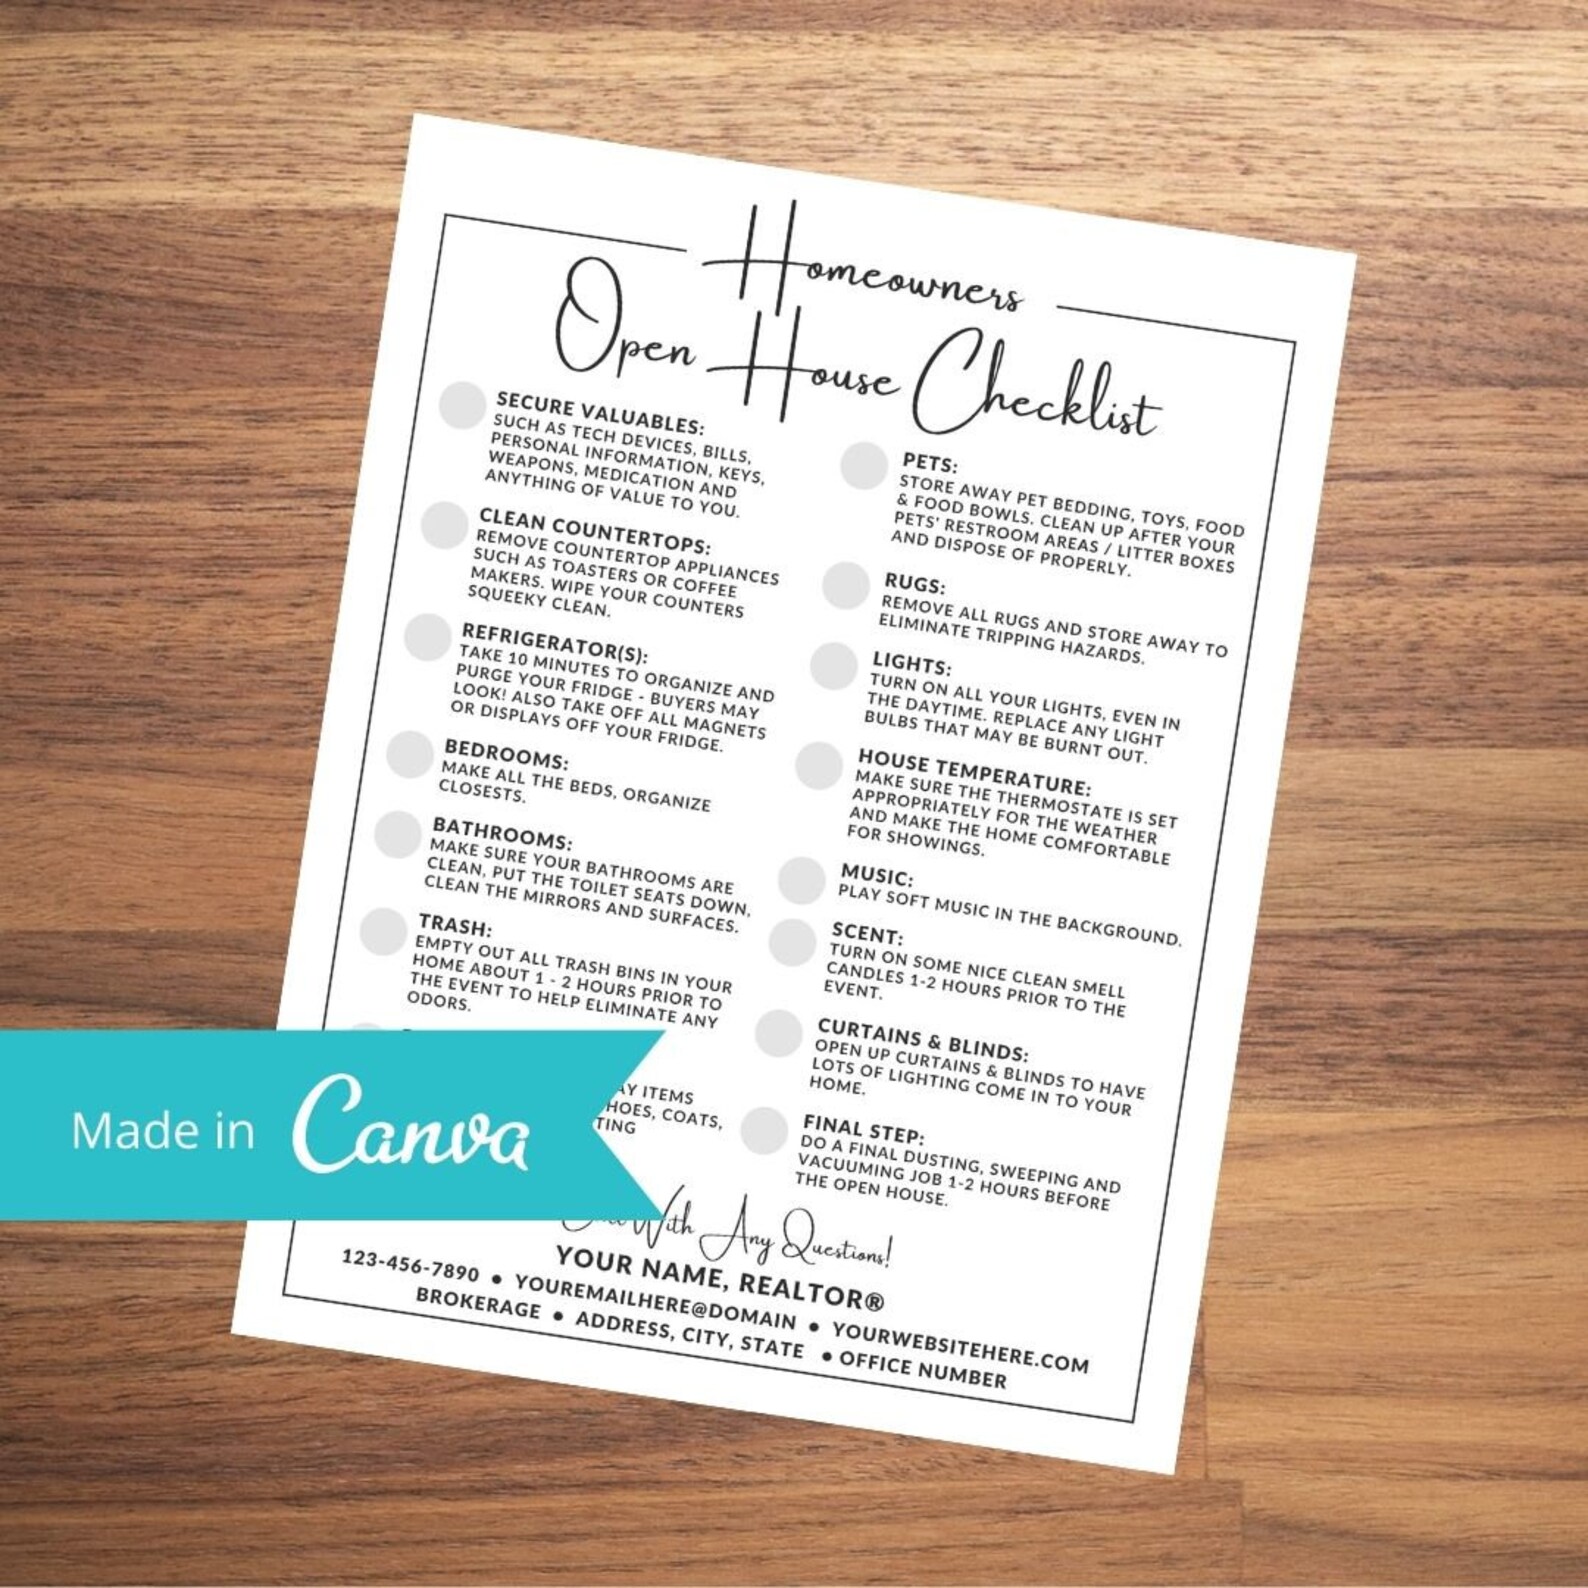 Homeowners
Open House Checklist
SECURE VALUABLES:
SUCH AS TECH DEVICES, BILLS,
PERSONAL INFORMATION, KEYS,
WEAPONS, MEDICATION AND
ANYTHING OF VALUE TO YOU.
CLEAN COUNTERTOPS:
REMOVE COUNTERTOP APPLIANCES
SUCH AS TOASTERS OR COFFEE
MAKERS. WIPE YOUR COUNTERS
SQUEEKY CLEAN.
REFRIGERATOR(S):
TAKE 10 MINUTES TO ORGANIZE AND
PURGE YOUR FRIDGE - BUYERS MAY
LOOK! ALSO TAKE OFF ALL MAGNETS
OR DISPLAYS OFF YOUR FRIDGE.
BEDROOMS:
MAKE ALL THE BEDS, ORGANIZE
CLOSESTS.
BATHROOMS:
MAKE SURE YOUR BATHROOMS ARE
CLEAN, PUT THE TOILET SEATS DOWN,
CLEAN THE MIRRORS AND SURFACES.
TRASH:
EMPTY OUT ALL TRASH BINS IN YOUR
HOME ABOUT 1 - 2 HOURS PRIOR TO
THE EVENT TO HELP ELIMINATE ANY
ODORS.
ITEMS
COATS,
PETS:
STORE AWAY PET BEDDING, TOYS, FOOD
& FOOD BOWLS. CLEAN UP AFTER YOUR
PETS' RESTROOM AREAS / LITTER BOXES
AND DISPOSE OF PROPERLY.
RUGS:
REMOVE ALL RUGS AND STORE AWAY TO
ELIMINATE TRIPPING HAZARDS.
LIGHTS:
TURN ON ALL YOUR LIGHTS, EVEN IN
THE DAYTIME. REPLACE ANY LIGHT
BULBS THAT MAY BE BURNT OUT.
HOUSE TEMPERATURE:
MAKE SURE THE THERMOSTATE IS SET
APPROPRIATELY FOR THE WEATHER
AND MAKE THE HOME COMFORTABLE
FOR SHOWINGS.
MUSIC:
PLAY SOFT MUSIC IN THE BACKGROUND.
SCENT:
TURN ON SOME NICE CLEAN SMELL
CANDLES 1-2 HOURS PRIOR TO THE
EVENT.
CURTAINS & BLINDS:
OPEN UP CURTAINS & BLINDS TO HAVE
LOTS OF LIGHTING COME IN TO YOUR
HOME.
FINAL STEP:
DO A FINAL DUSTING, SWEEPING AND
VACUUMING JOB 1-2 HOURS BEFORE
THE OPEN HOUSE.
With Any Questions!
YOUR NAME, REALTOR®
123-456-7890 • YOUREMAILHERE@DOMAIN • YOURWEBSITEHERE.COM
BROKERAGE • ADDRESS, CITY, STATE • OFFICE NUMBER
Made in Canva